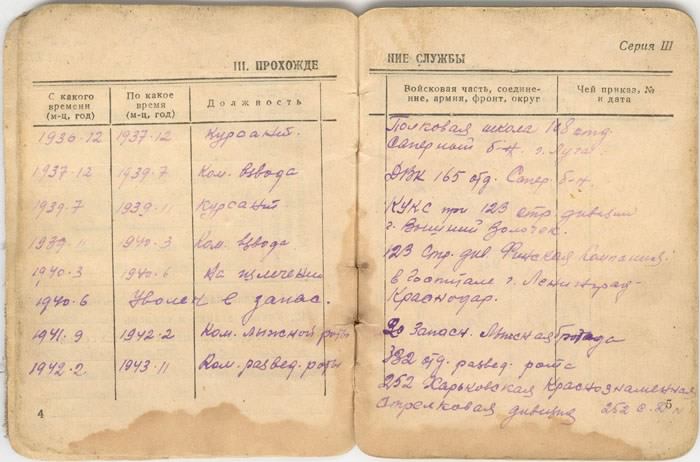 Серия III
III. ПРОХОЖДЕ
НИЕ СЛУЖБЫ
С какого времени (м-ц, год)
По какое время (м-ц, год)
Должность
Войсковая часть, соедине-
ние, армия, фронт, округ
Чей приказ, №
и дата
1936-12 1937-12 Курсант. Полковая школа 108 отд.
Саперный б-н г. Луга
1937-12 1939-7 Ком. взвода ДВК 165 отд. Сапер. б-н.
1939-7 1939-11 Курсант КУКС при 123 стр. дивизии
г. Вышний Волочек.
1939-11 1940-3 Ком. взвода 123 Стр. див Финская Компания.
1940-3 1940-6 На излечении в Госпитале г. Ленинград-
Краснодар.
1940-6 Уволен в запас.
1941-9 1942-2 Ком. лыжной роты Запасн. Лыжная бригада
1942-2 1943-11 Ком. развед. роты 332 отд. развед. рота
252 Харьковская Краснознаменная
стрелковая дивизия 252 с.д.
4
5